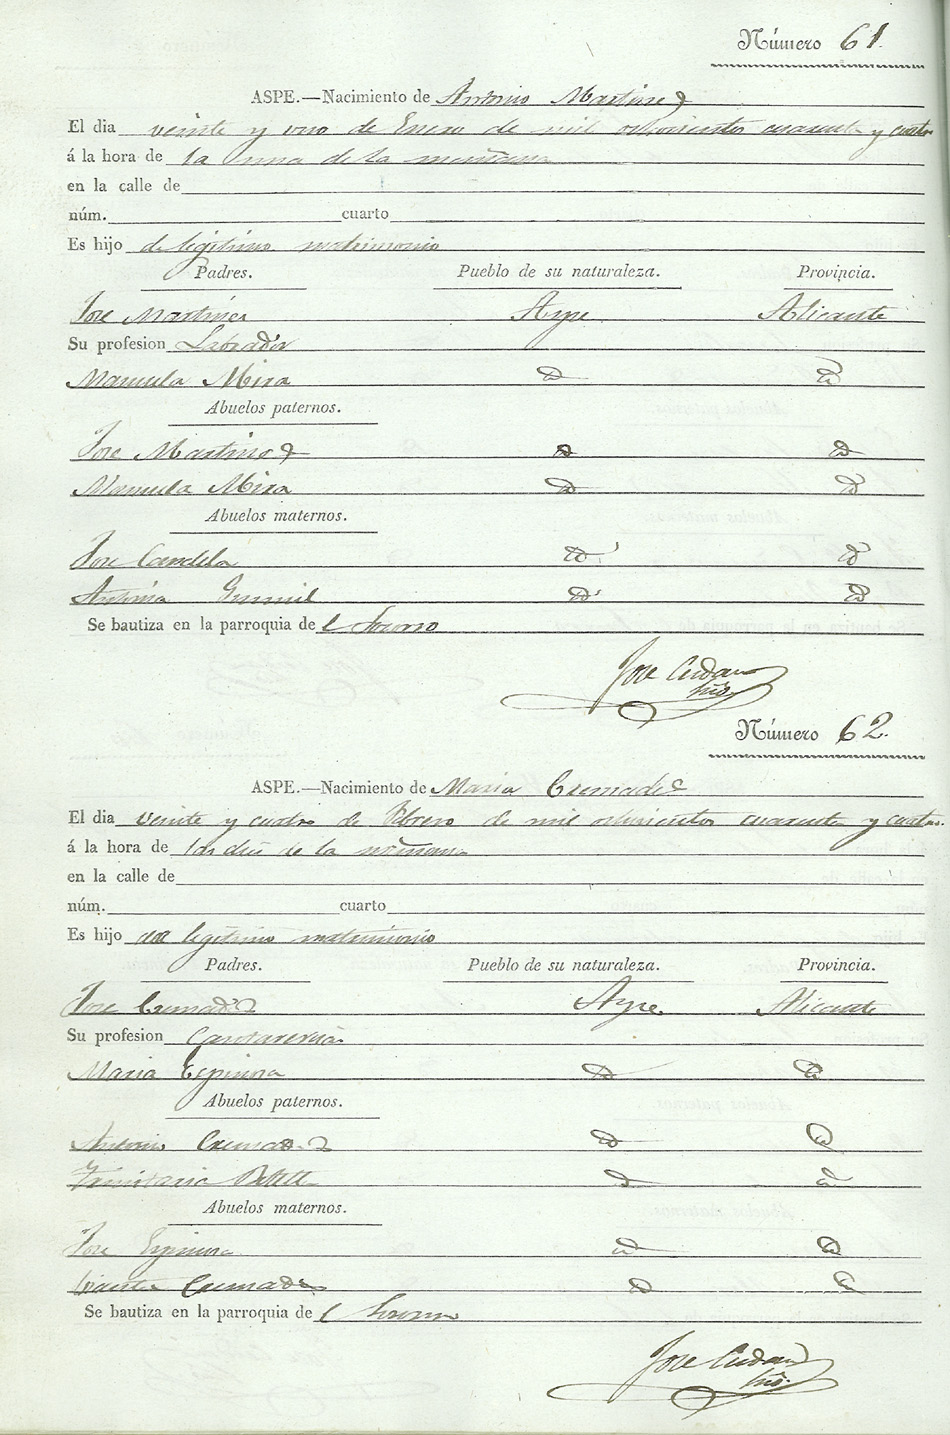 Número 61.
ASPE.—Nacimiento de Antonio Martinez
El dia veinte y uno de Enero de mil ochocientos cuarenta y cuatro
á la hora de la una de la mañana
en la calle de
núm. cuarto
Es hijo de legitimo matrimonio
Padres. Pueblo de su naturaleza. Provincia.
Jose Martinez Aspe Alicante
Su profesion Labrador
Manuela Mira
Abuelos paternos.
Jose Martinez
Manuela Mira
Abuelos maternos.
Jose Candela
Antonia
Se bautiza en la parroquia de l Socorro
Jose
Número 62.
ASPE.—Nacimiento de Maria Cremades
El dia veinte y cuatro de Febrero de mil ochocientos cuarenta y cuatro
á la hora de las diez de la mañana
en la calle de
núm. cuarto
Es hijo de legitimo matrimonio
Padres. Pueblo de su naturaleza. Provincia.
Jose Cremades Aspe Alicante
Su profesion
Maria Espinosa
Abuelos paternos.
Antonio Cremades
Abuelos maternos.
Jose Espinosa
Cremades
Se bautiza en la parroquia de l Socorro
Jose